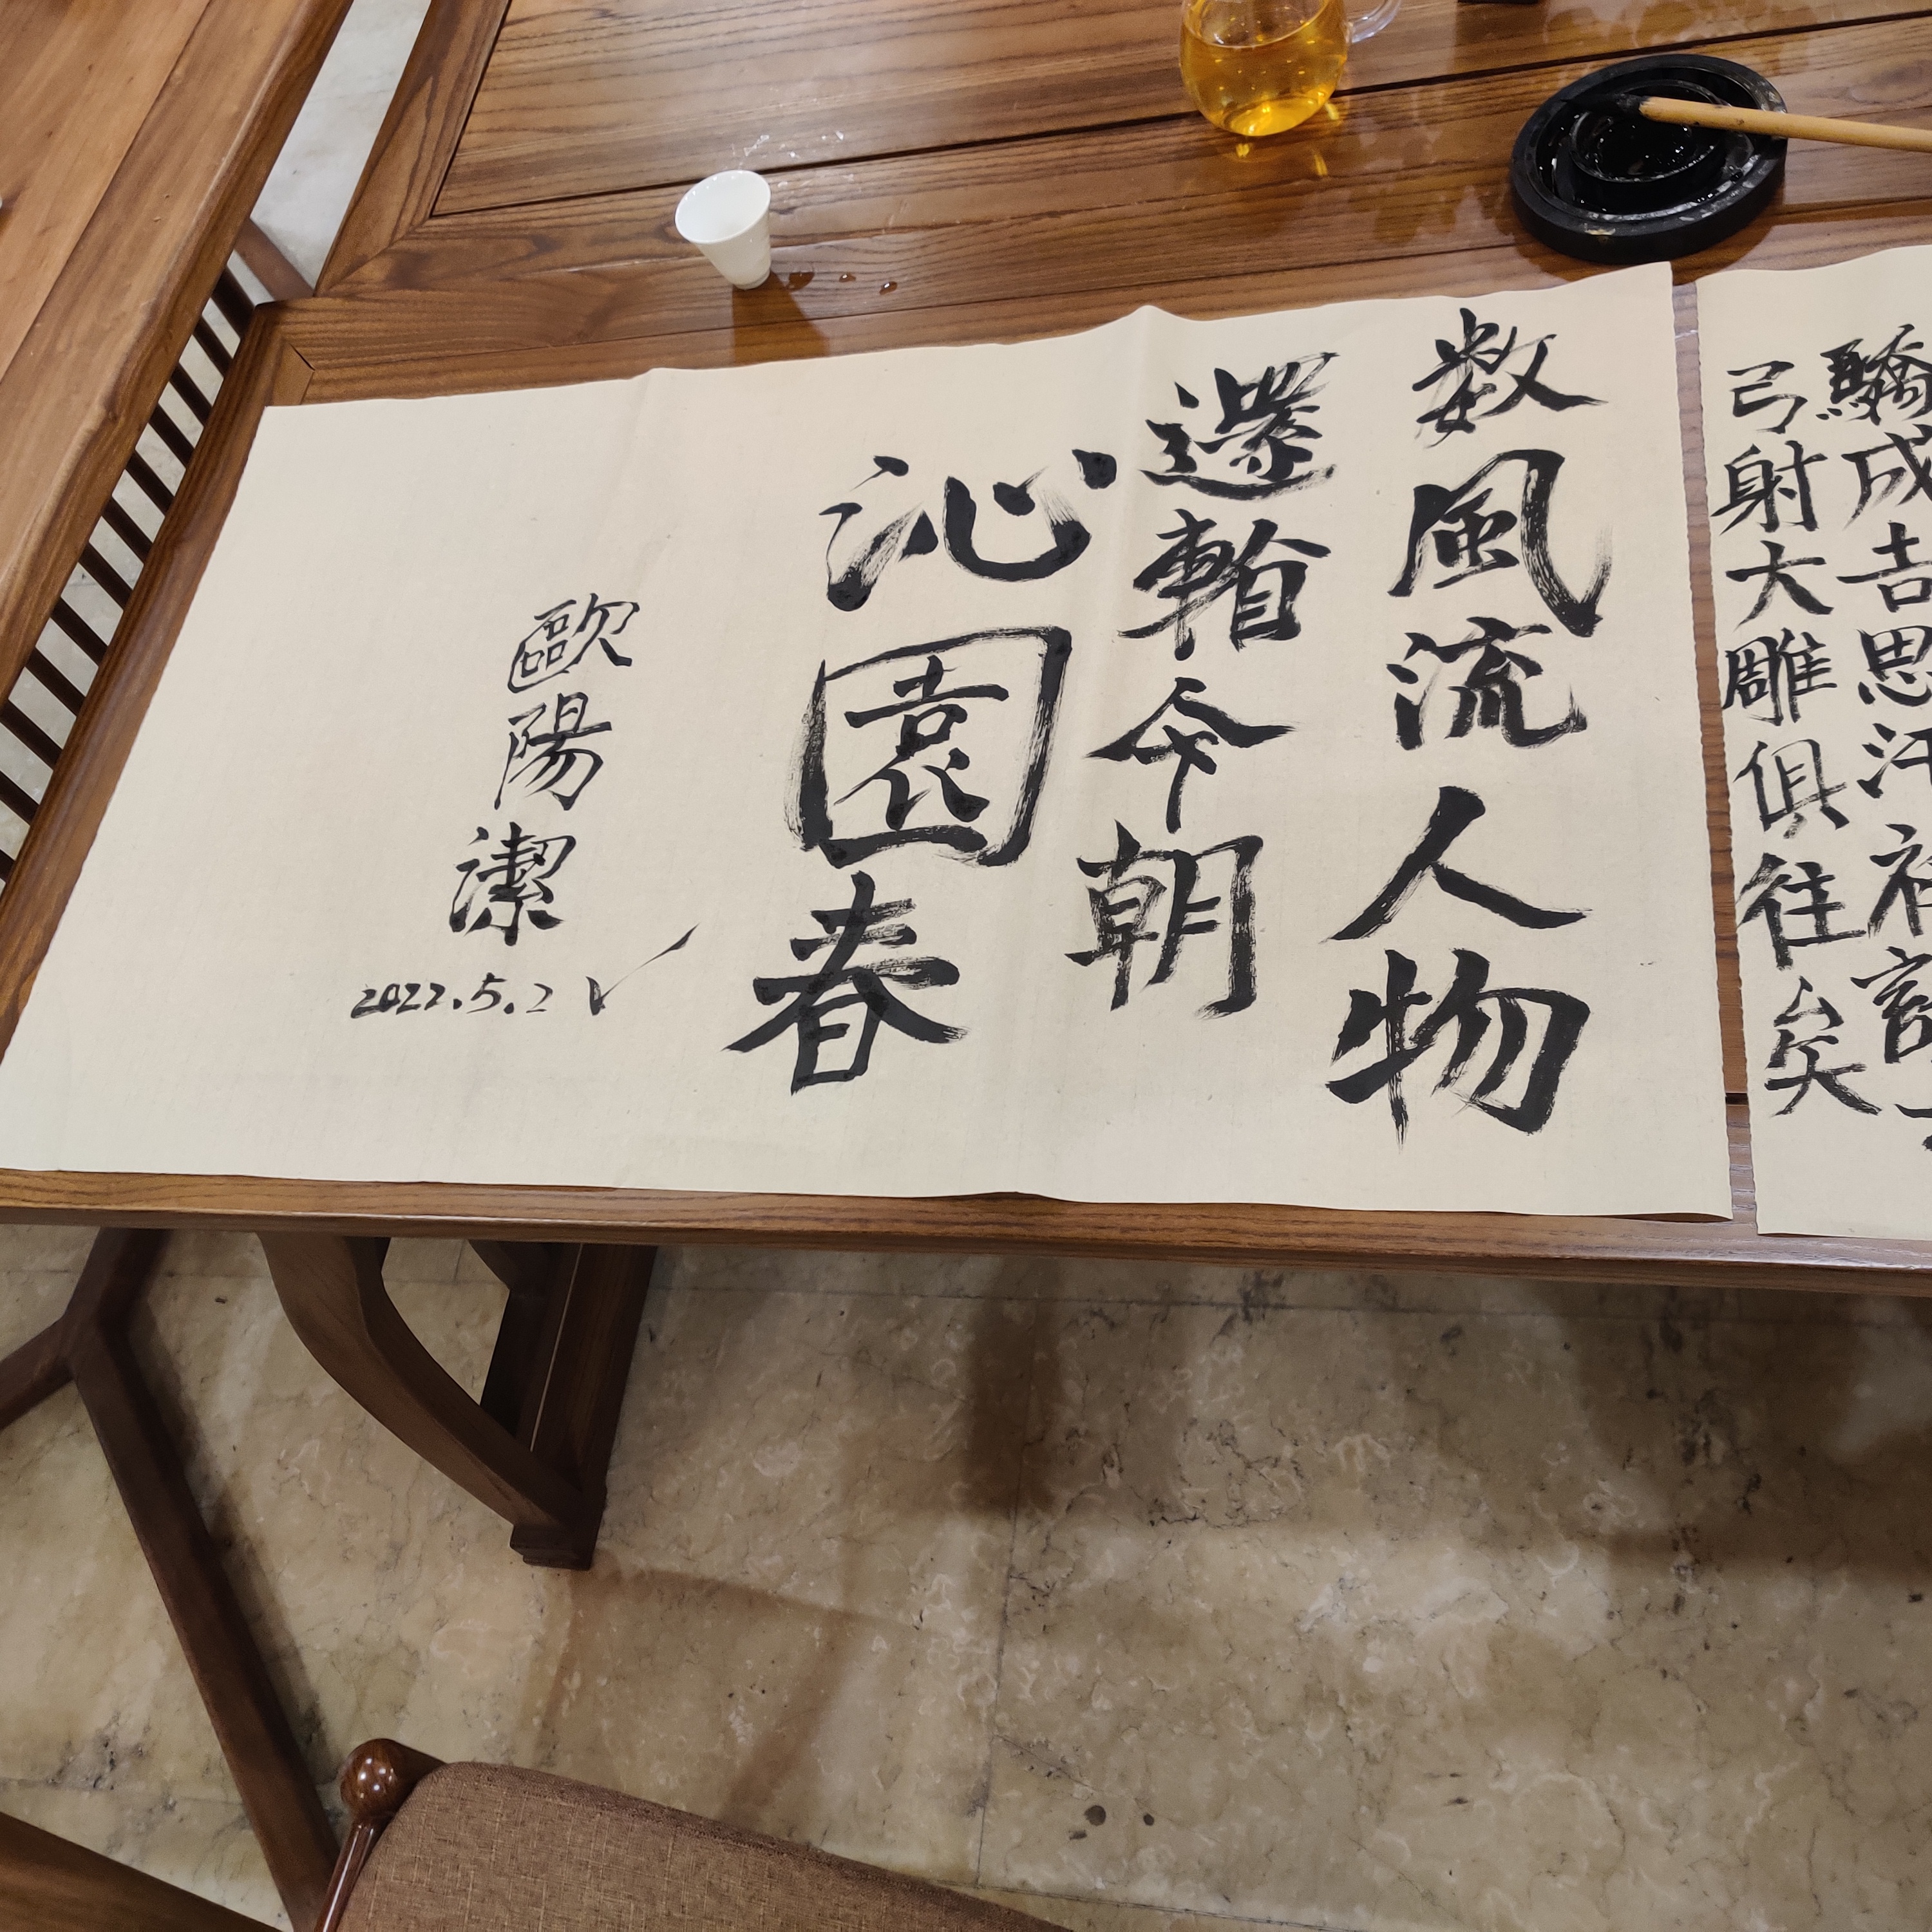 驕成吉思汗
弓射大雕俱往矣
数風流人物
還今朝
沁園春
歐陽潔
2022.5.2